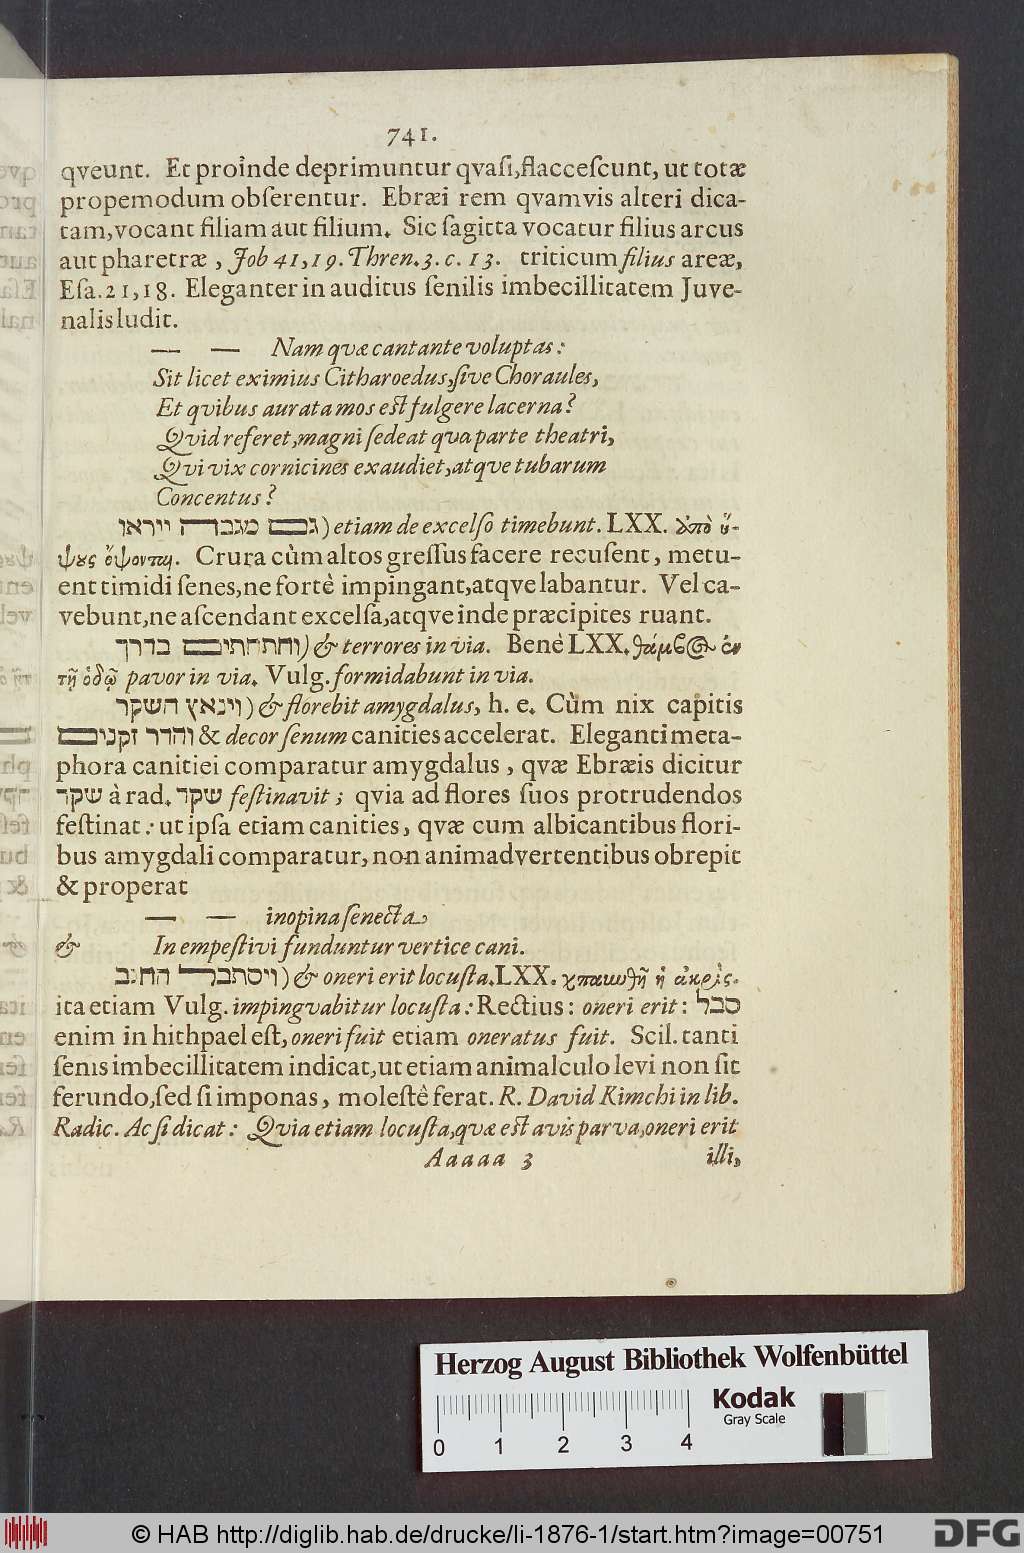 741.
qveunt. Et proinde deprimuntur qvaſi,flacceſcunt, ut totæ
propemodum obſerentur. Ebræi rem qvamvis alteri dica-
tam,vocant filiam aut filium. Sic ſagitta vocatur filius arcus
aut pharetræ, Job 41,19. Thren.3. c. 13. triticum filius areæ,
Eſa.21,18. Eleganter in auditus ſenilis imbecillitatem Juve-
nalis ludit.
— — Nam quæ cantante voluptas:
Sit licet eximius Citharoedus,ſive Choraules,
Et qvibus aurata mos eſt fulgere lacerna?
Qvid referet,magni ſedeat qua parte theatri,
Qvi vix cornicines exaudiet,atqve tubarum
Concentus?
גם מגבה ייראו) etiam de excelſo timebunt. LXX. ἀπὸ ὕ-
ψους ὄψονται. Crura cùm altos greſſus facere recuſent, metu-
ent timidi ſenes,ne fortè impingant,atqve labantur. Vel ca-
vebunt,ne aſcendant excelſa,atqve inde præcipites ruant.
וחתחתים בדרך) & terrores in via. Benè LXX. θάμβος ἐν
τῇ ὁδῷ pavor in via. Vulg. formidabunt in via.
וינאץ השקר) & florebit amygdalus, h. e. Cùm nix capitis
והדר זקנים & decor ſenum canities accelerat. Eleganti meta-
phora canitiei comparatur amygdalus, qvæ Ebræis dicitur
שקר à rad. שקר feſtinavit; qvia ad flores ſuos protrudendos
feſtinat: ut ipſa etiam canities, qvæ cum albicantibus flori-
bus amygdali comparatur, non animadvertentibus obrepit
& properat
— — inopina ſenecta,
& In empeſtivi funduntur vertice cani.
ויסתבל החגב) & oneri erit locuſta. LXX. χπαιωθῆ ἡ ἀκρὶς.
ita etiam Vulg. impingvabitur locuſta: Rectius: oneri erit: סבל
enim in hithpael eſt, oneri fuit etiam oneratus fuit. Scil. tanti
ſenis imbecillitatem indicat,ut etiam animalculo levi non ſit
ferundo,ſed ſi imponas, moleſtê ferat. R. David Kimchi in lib.
Radic. Ac ſi dicat: Qvia etiam locuſta,quæ eſt avis parva,oneri erit
Aaaaa 3 illi,
Herzog August Bibliothek Wolfenbüttel
0 1 2 3 4
Kodak
Gray Scale
© HAB http://diglib.hab.de/drucke/li-1876-1/start.htm?image=00751
DFG